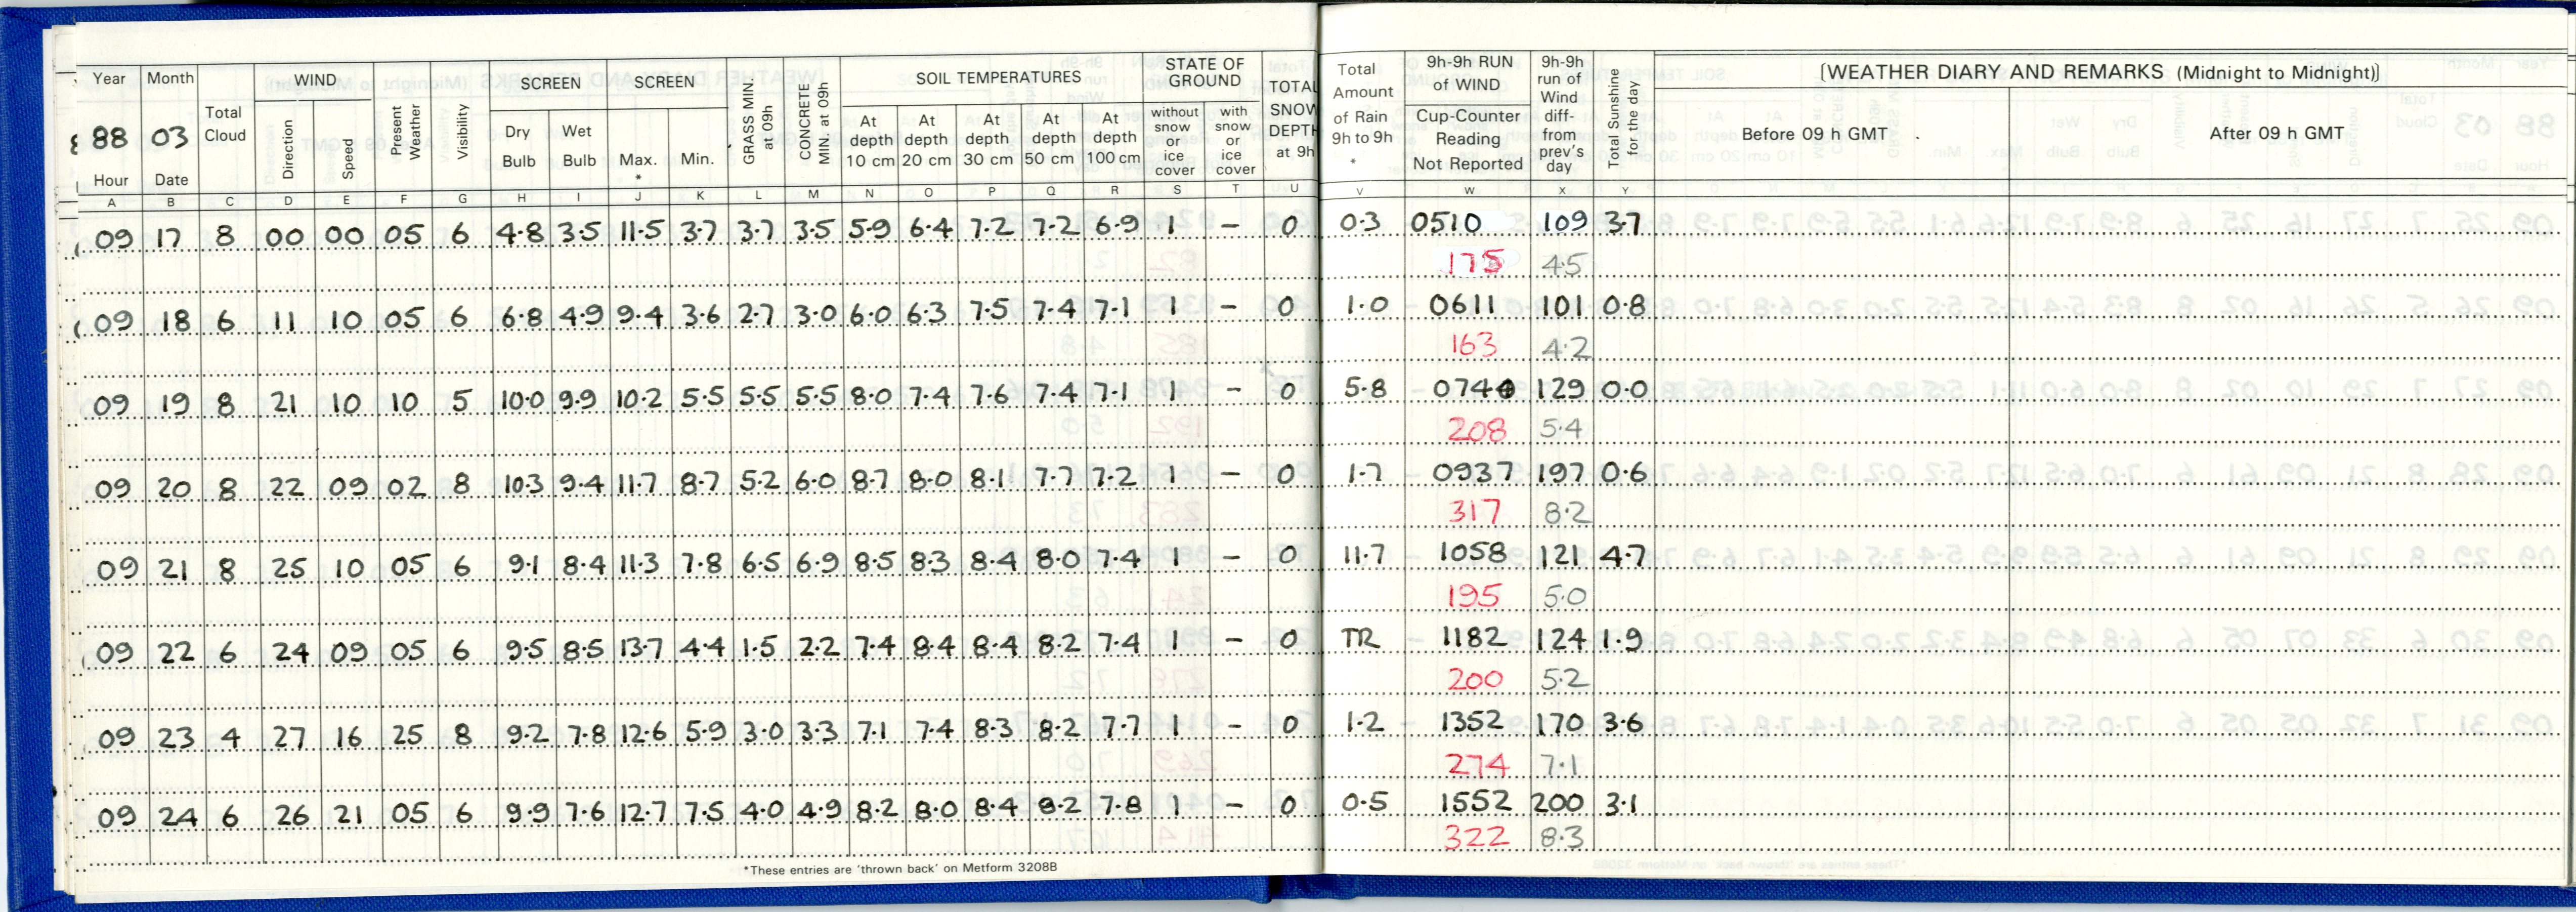 Year Month Total Cloud WIND Present Weather Visibility SCREEN SCREEN GRASS MIN. at 09h CONCRETE MIN at 09h SOIL TEMPERATURES STATE OF GROUND TOTAL SNOW DEPTH at 9h Total Amount of Rain 9h to 9h * 9h-9h RUN of WIND 9h-9h run of Wind diff- from prev's day Total Sunshine for the day [WEATHER DIARY AND REMARKS (Midnight to Midnight)]
88 03 Direction Speed Dry Bulb Wet Bulb Max. * Min. At depth 10 cm At depth 20 cm At depth 30 cm At depth 50 cm At depth 100 cm without snow or ice cover with snow or ice cover Cup-Counter Reading Not Reported Before 09 h GMT After 09 h GMT
Hour Date
A B C D E F G H I J K L M N O P Q R S T U V W X Y
09 17 8 00 00 05 6 4.8 3.5 11.5 3.7 3.7 3.5 5.9 6.4 7.2 7.2 6.9 1 – 0 0.3 0510 109 3.7
175 4.5
09 18 6 11 10 05 6 6.8 4.9 9.4 3.6 2.7 3.0 6.0 6.3 7.5 7.4 7.1 1 – 0 1.0 0611 101 0.8
163 4.2
09 19 8 21 10 10 5 10.0 9.9 10.2 5.5 5.5 5.5 8.0 7.4 7.6 7.4 7.1 1 – 0 5.8 0740 129 0.0
208 5.4
09 20 8 22 09 02 8 10.3 9.4 11.7 8.7 5.2 6.0 8.7 8.0 8.1 7.7 7.2 1 – 0 1.7 0937 197 0.6
317 8.2
09 21 8 25 10 05 6 9.1 8.4 11.3 7.8 6.5 6.9 8.5 8.3 8.4 8.0 7.4 1 – 0 11.7 1058 121 4.7
195 5.0
09 22 6 24 09 05 6 9.5 8.5 13.7 4.4 1.5 2.2 7.4 8.4 8.4 8.2 7.4 1 – 0 TR 1182 124 1.9
200 5.2
09 23 4 27 16 25 8 9.2 7.8 12.6 5.9 3.0 3.3 7.1 7.4 8.3 8.2 7.7 1 – 0 1.2 1352 170 3.6
274 7.1
09 24 6 26 21 05 6 9.9 7.6 12.7 7.5 4.0 4.9 8.2 8.0 8.4 8.2 7.8 1 – 0 0.5 1552 200 3.1
322 8.3
*These entries are 'thrown back' on Metform 3208B